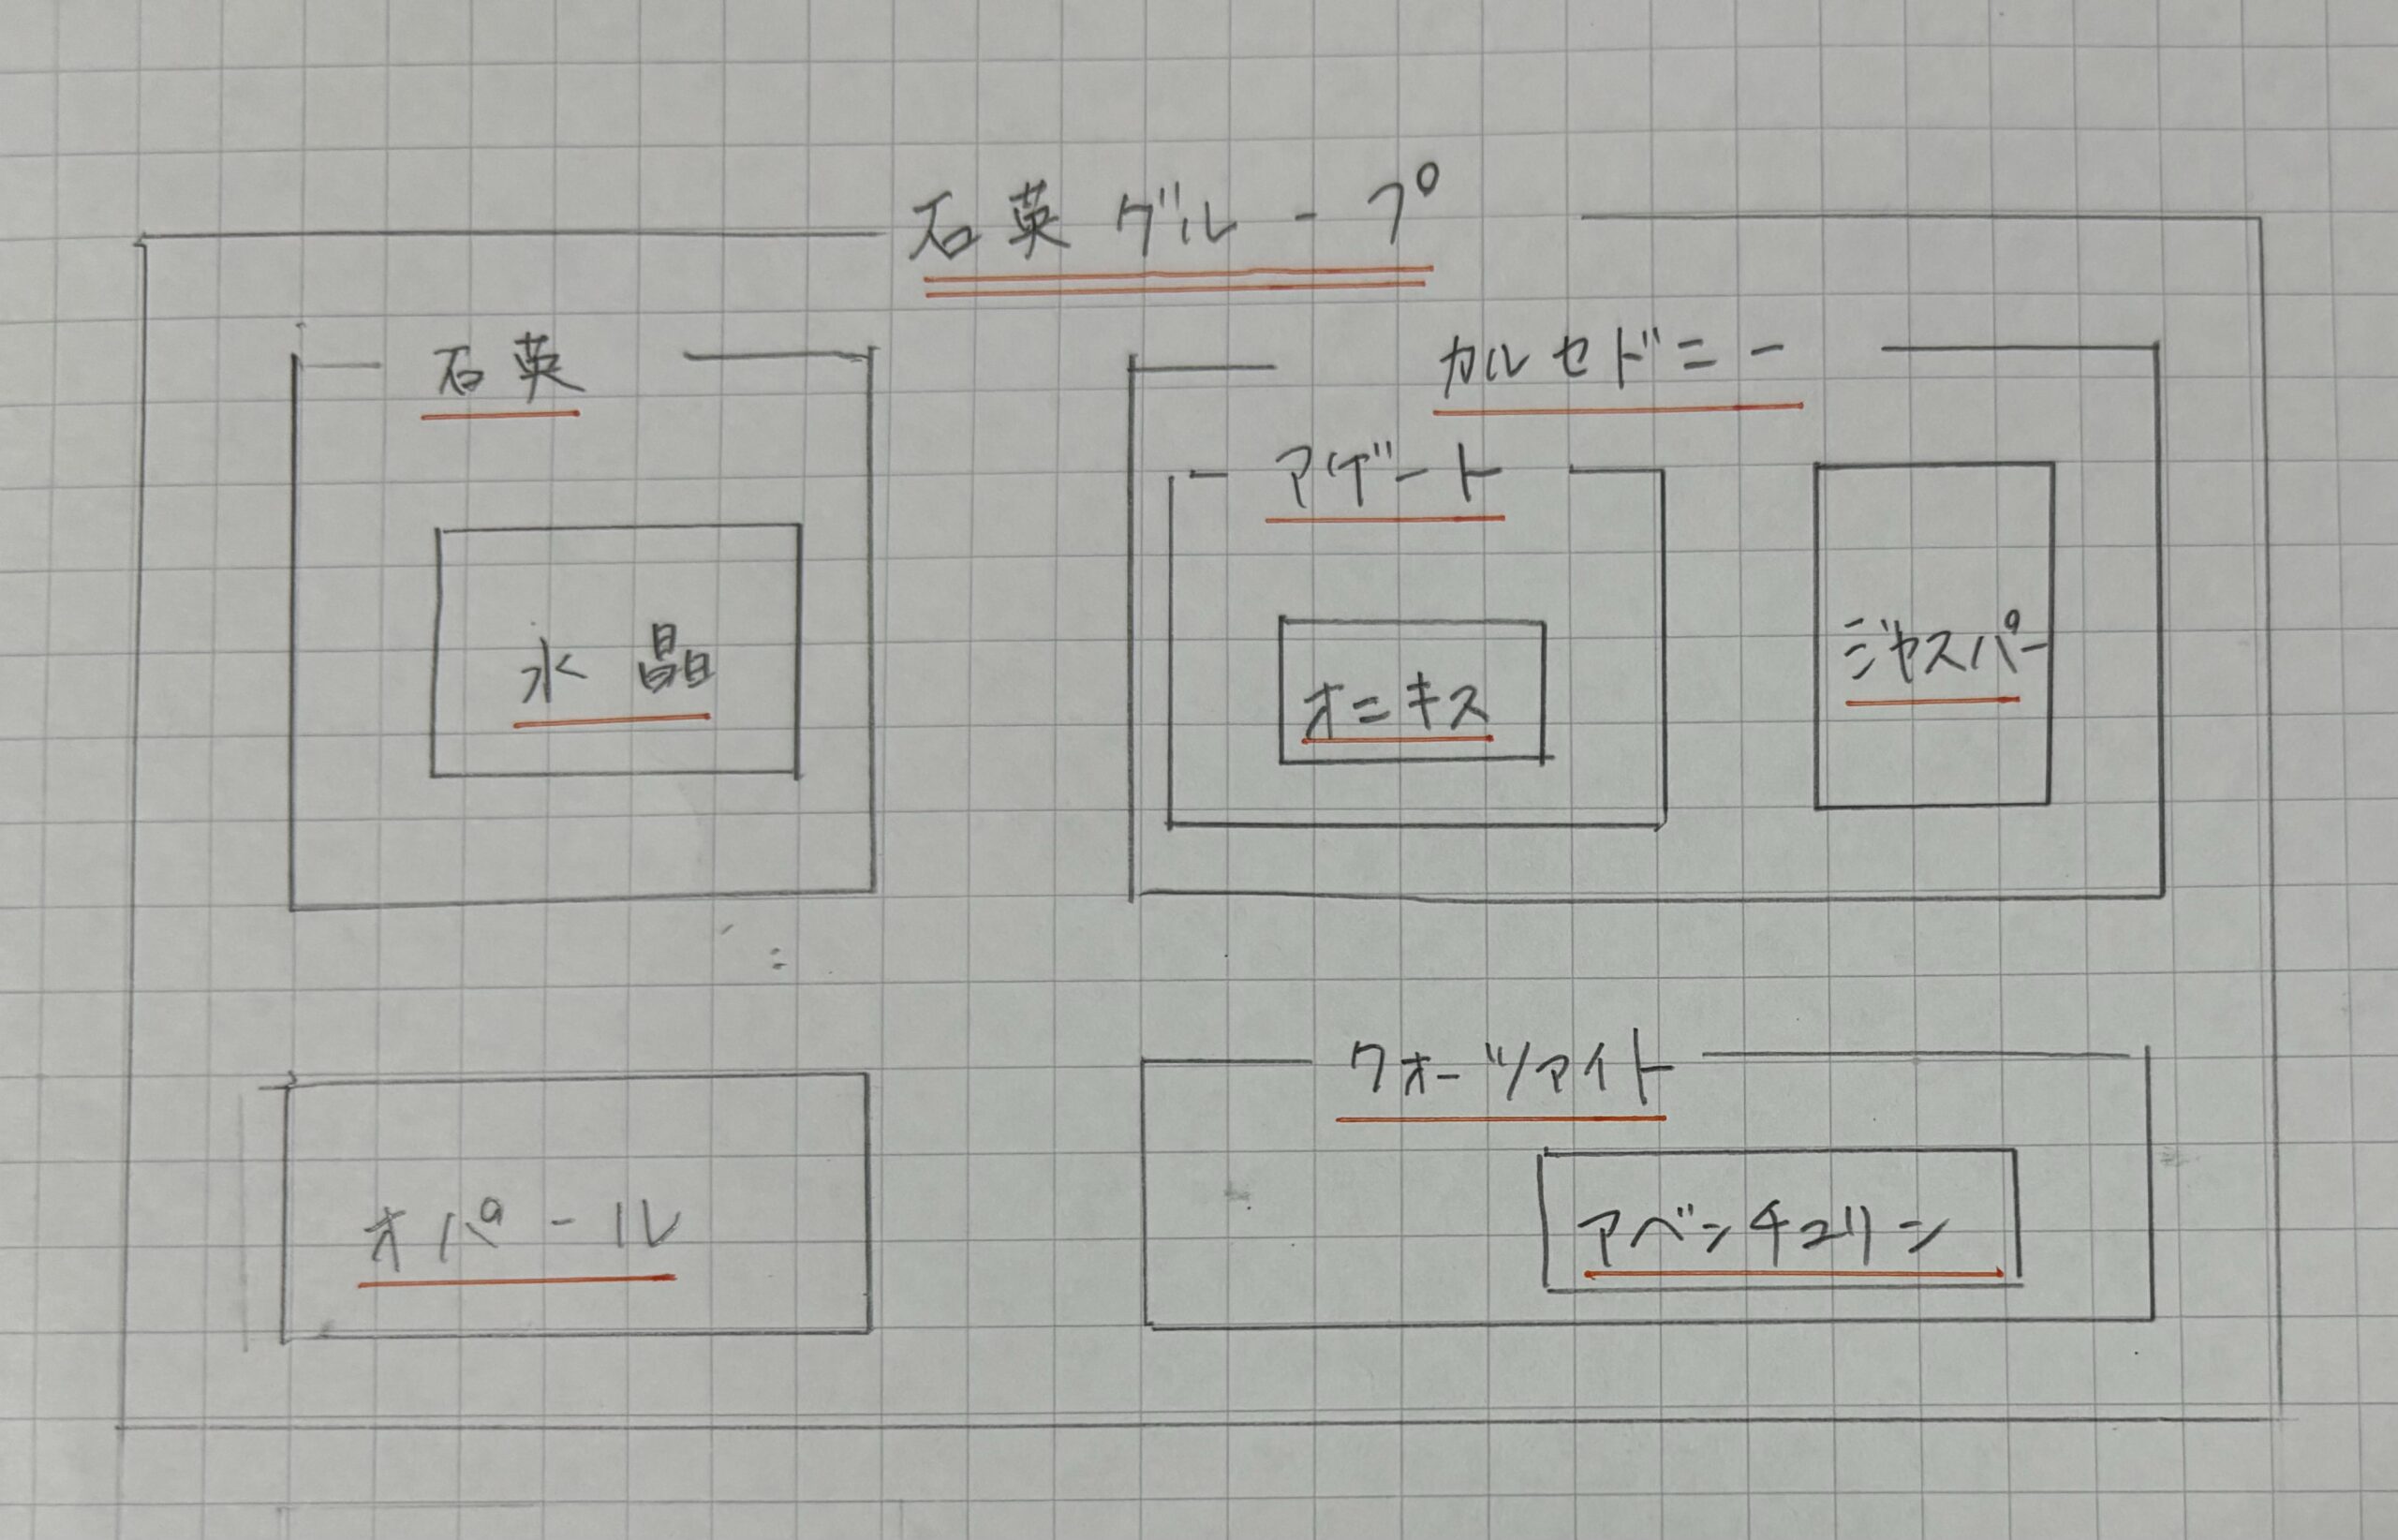 石英グループ
石英
水晶
カルセドニー
アゲート
オニキス
ジャスパー
オパール
クォーツァイト
アベンチュリン